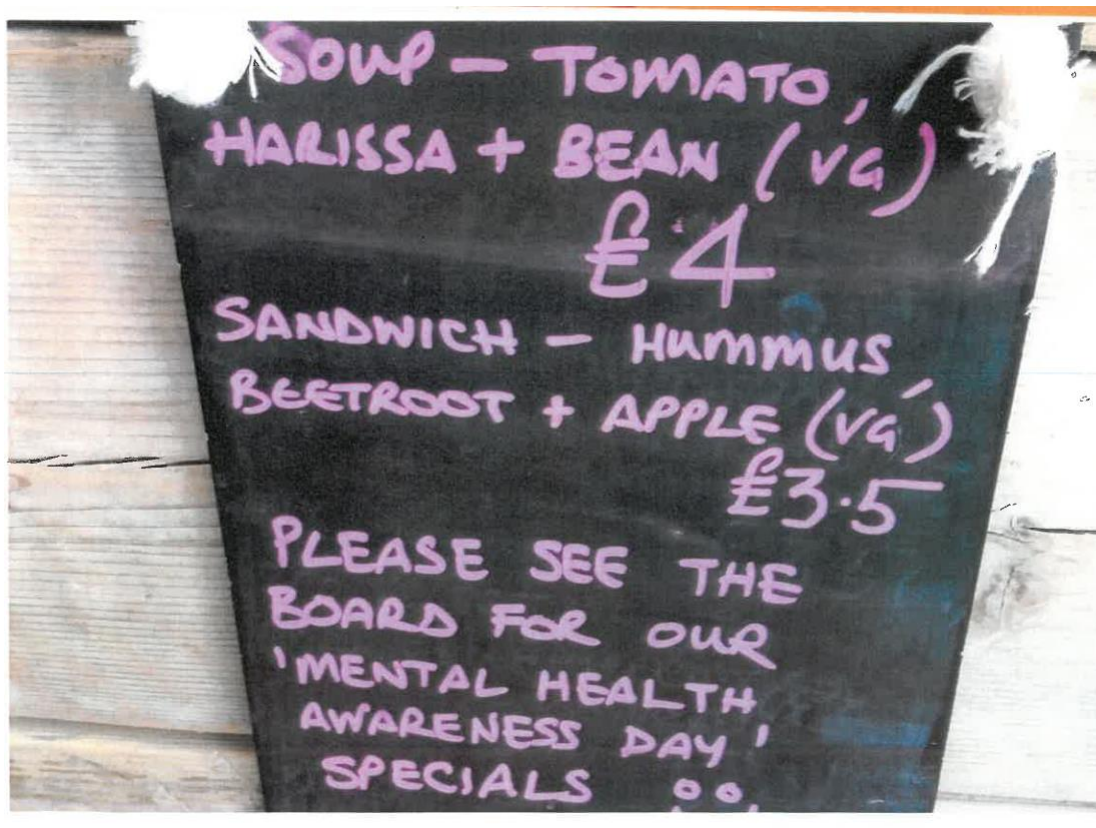 SOUP - TOMATO,
HARISSA + BEAN (VG)
£4
SANDWICH - HUMMUS,
BEETROOT + APPLE (VG)
£3.5
PLEASE SEE THE
BOARD FOR OUR
'MENTAL HEALTH
AWARENESS DAY'
SPECIALS